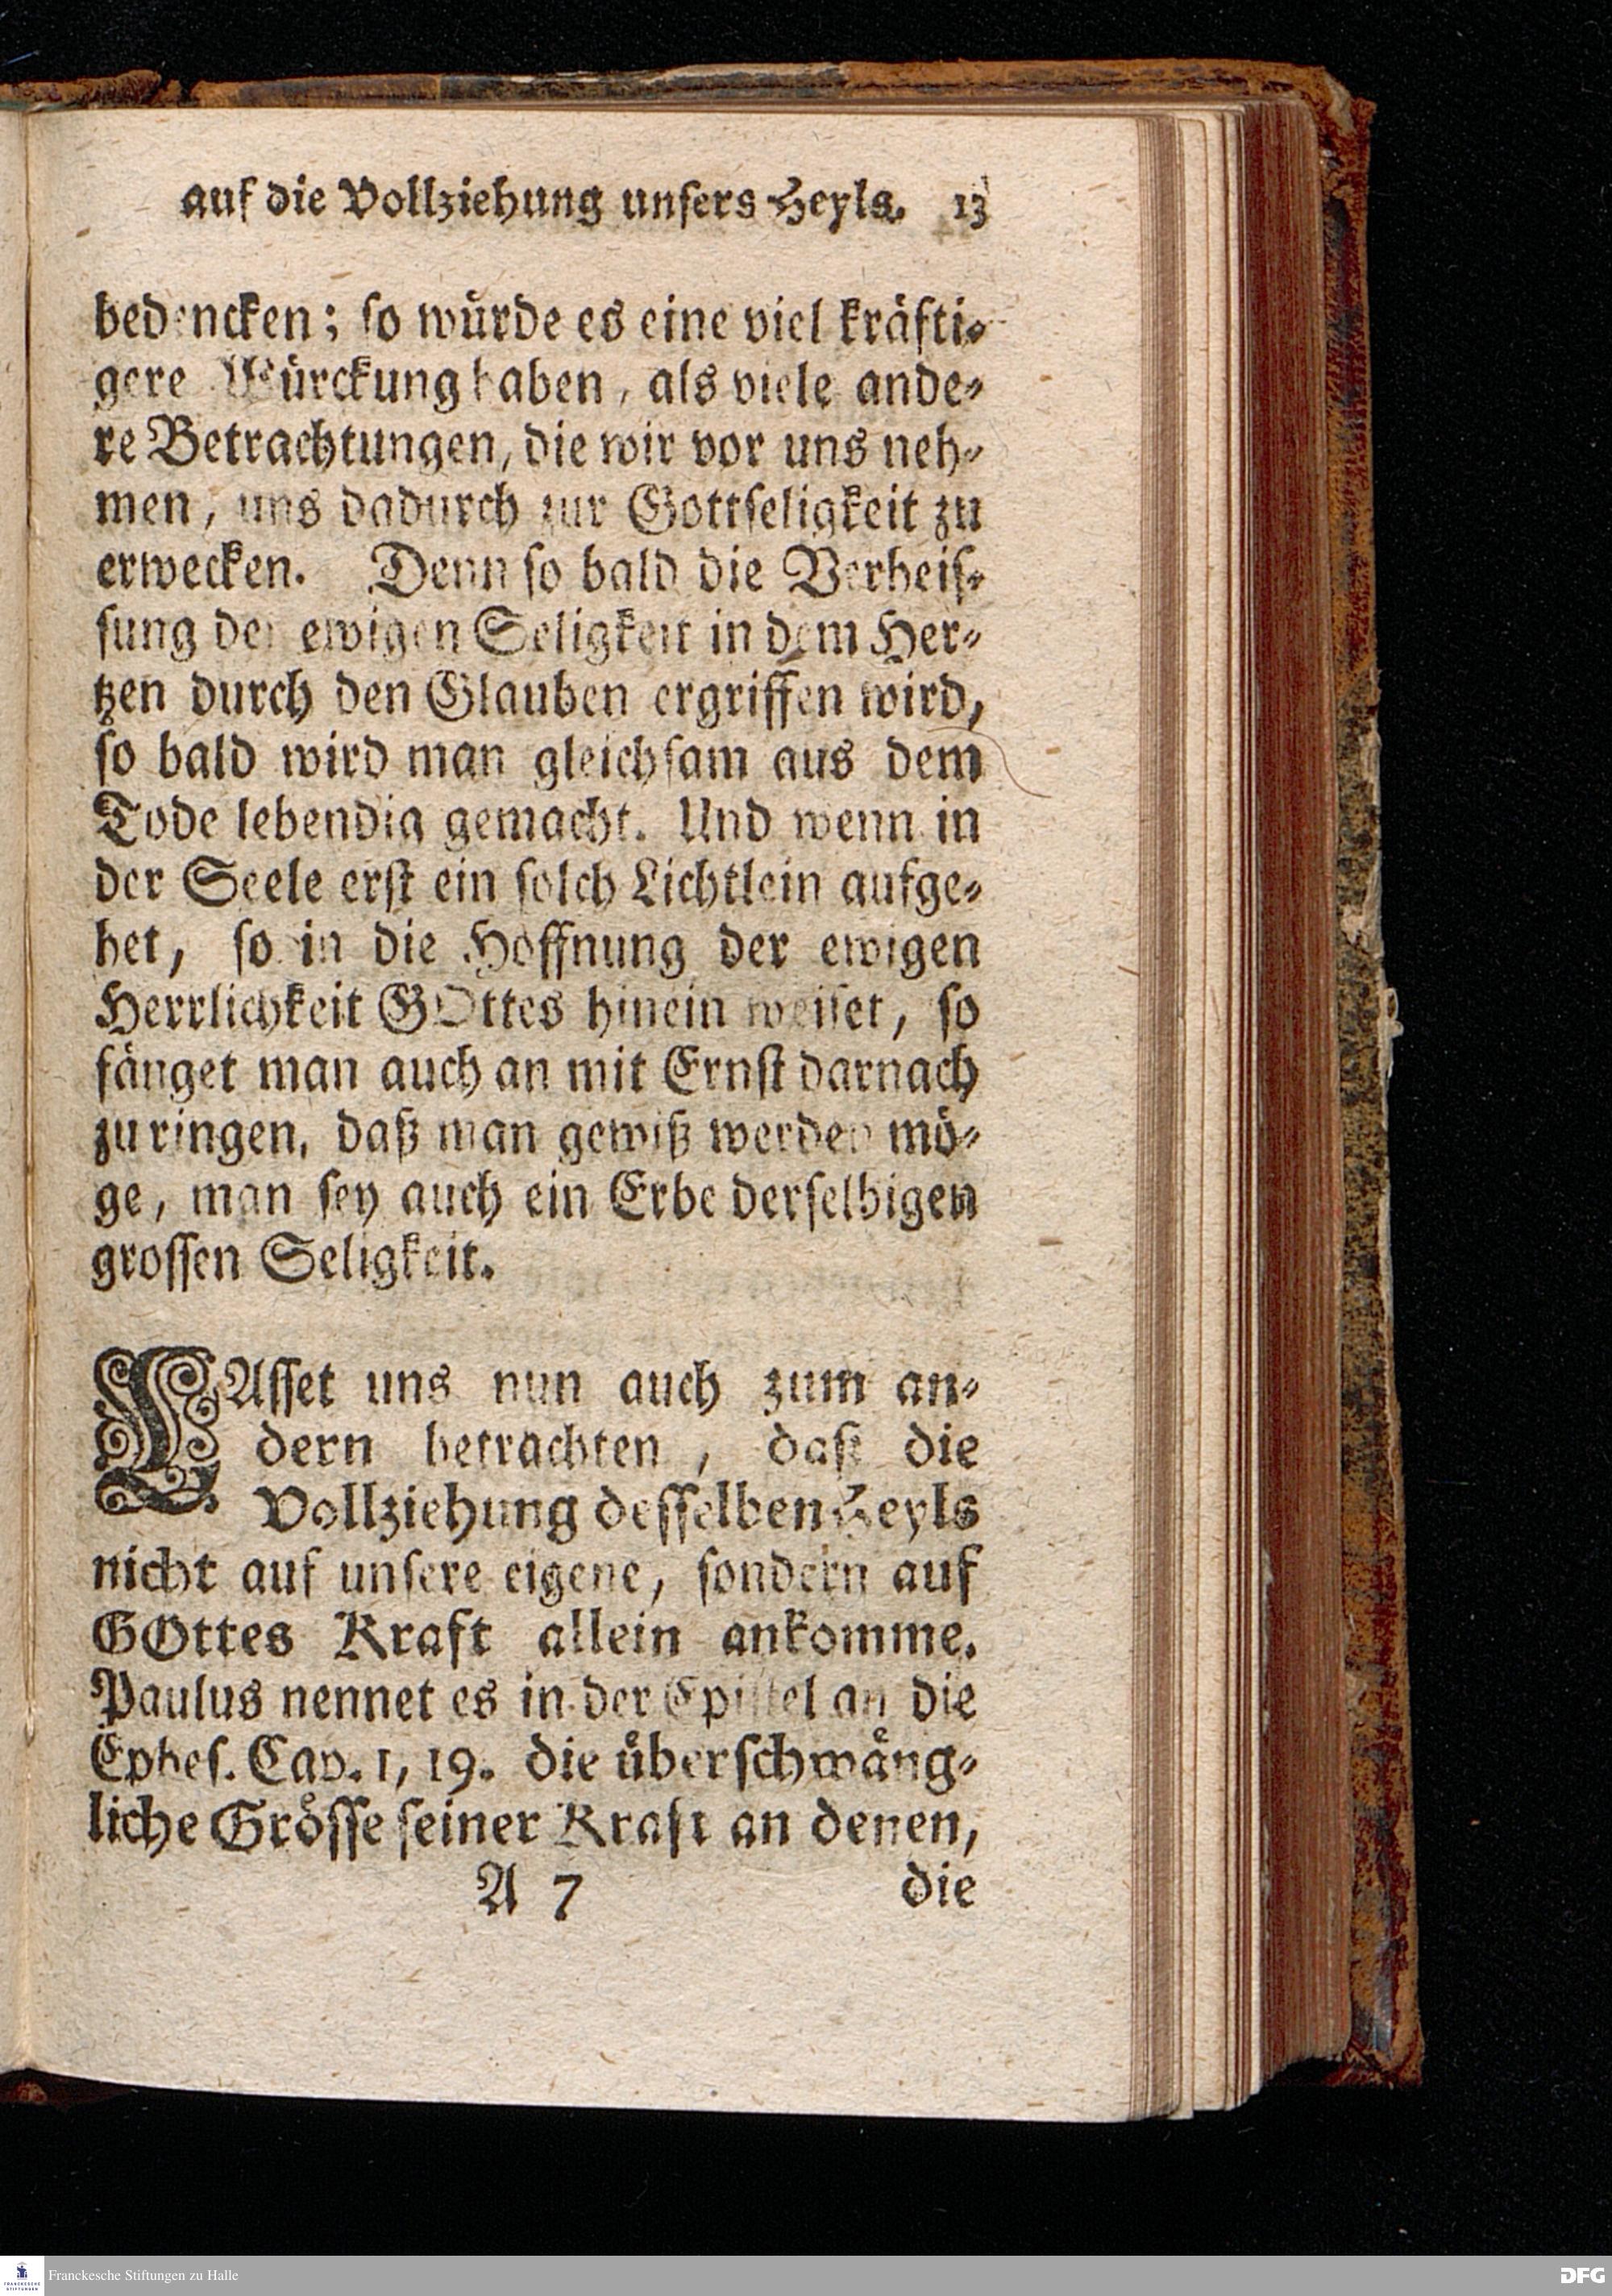 auf die Vollziehung unsers Heyls. 13
bedencken; so würde es eine viel kräfti-
gere Würckung haben, als viele ande-
re Betrachtungen, die wir vor uns neh-
men, uns dadurch zur Gottseligkeit zu
erwecken. Denn so bald die Verheis-
sung der ewigen Seligkeit in dem Her-
tzen durch den Glauben ergriffen wird,
so bald wird man gleichsam aus dem
Tode lebendig gemacht. Und wenn in
der Seele erst ein solch Lichtlein aufge-
het, so in die Hoffnung der ewigen
Herrlichkeit GOttes hinein weiset, so
fänget man auch an mit Ernst darnach
zu ringen, daß man gewiß werden mö-
ge, man sey auch ein Erbe derselbigen
grossen Seligkeit.
LAsset uns nun auch zum an-
dern betrachten, daß die
Vollziehung desselben Heyls
nicht auf unsere eigene, sondern auf
GOttes Kraft allein ankomme.
Paulus nennet es in der Epistel an die
Ephes. Cap. 1, 19. die überschwäng-
liche Grösse seiner Kraft an denen,
A 7 die
Franckesche Stiftungen zu Halle
FRANCKESCHE
STIFTUNGEN
DFG